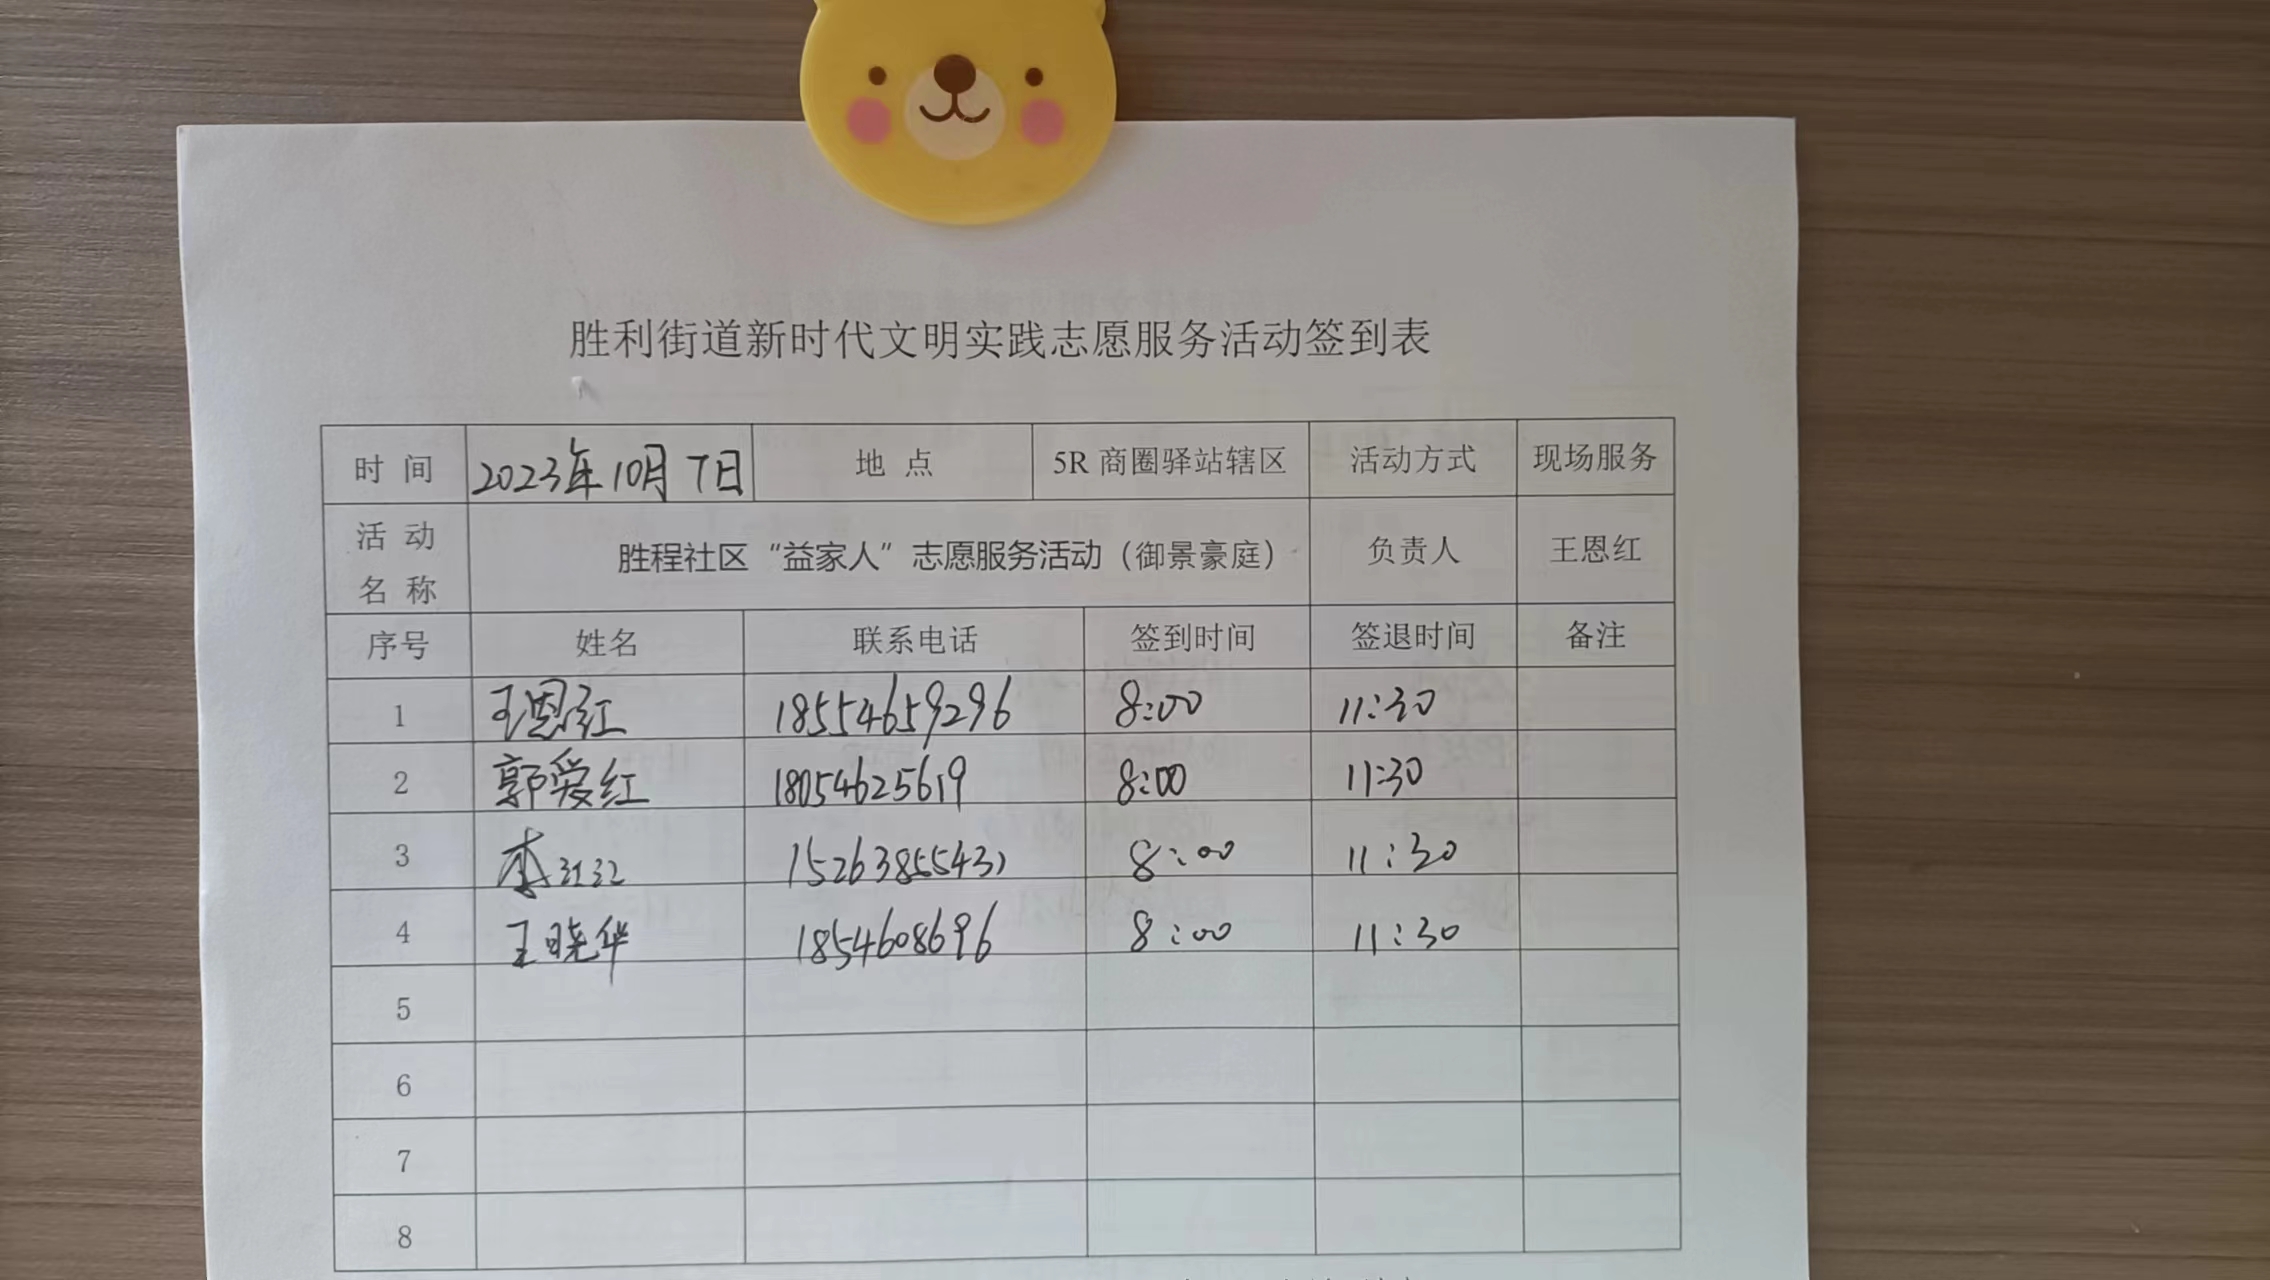 胜利街道新时代文明实践志愿服务活动签到表
时 间 2023年10月7日 地 点 5R 商圈驿站辖区 活动方式 现场服务
活 动
名 称 胜程社区“益家人”志愿服务活动（御景豪庭） 负责人 王恩红
序号 姓名 联系电话 签到时间 签退时间 备注
1 王恩红 18554659296 8:00 11:30
2 郭爱红 18054625619 8:00 11:30
3 李红红 15263855431 8:00 11:30
4 王晓华 1854608696 8:00 11:30
5
6
7
8